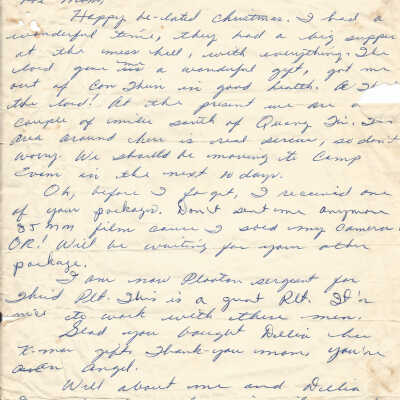 Mom,
Happy be-lated Christmas. I had a
wonderful time, they had a big supper
at the mess hall, with everything. The
lord gave me a wonderful gift, got me
out of Con Thien in good health. A
the lord! At the present we are a
couple of miles south of Quang Tri. The
area around here is real secure, so don't
worry. We should be moving to Camp
Evans in the next 10 days.
Oh, before I forget, I received one
of your packages. Don't sent me anymore
35 mm film cause I sold my Camera.
OK! Will be waiting for your other
package.
I am now Platoon sergeant for
Third Plt. This is a great Plt. It's
nice to work with these men.
Glad you bought Delia her
X-mas gifts. Thank-you mom, you're
an angel.
Well about me and Delia